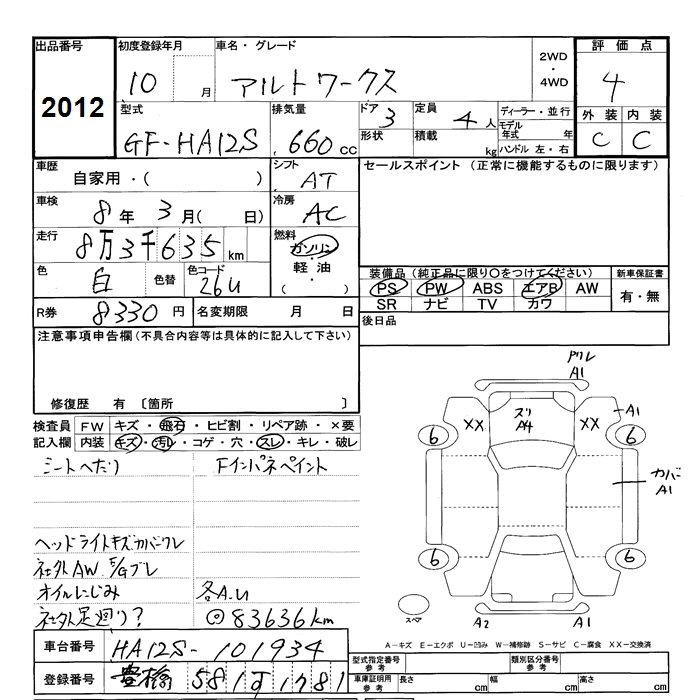 出品番号 初度登録年月 車名・グレード 2WD・4WD 評価点
2012 10 月 アルトワークス 4
型式 排気量 ドア 3 定員 4人 ディーラー・並行 外装 内装
GF-HA12S 660 cc 形状 積載 kg モデル年式 年 C C
ハンドル 左・右
車歴 自家用・( ) シフト AT セールスポイント (正常に機能するものに限ります)
車検 8年 3月( 日) 冷房 AC
走行 8万3千635 km 燃料 ガソリン・軽油・( )
色 白 色替 色コード 26U 装備品 (純正品に限り○をつけてください) 新車保証書
PS PW ABS エアB AW 有・無
SR ナビ TV カワ
R券 8330 円 名変期限 月 日 後日品
注意事項申告欄(不具合内容等は具体的に記入して下さい)
修復歴 有 〔箇所 〕
検査員 FW キズ・飛石・ヒビ割・リペア跡・×要
記入欄 内装 キズ・汚レ・コゲ・穴・スレ・キレ・破レ
シートへたり Fインパネペイント
ヘッドライトキズカバーワレ
社外AW E/Gブレ
オイルにじみ 各A.U
社外足廻り? ◎83636km
車台番号 HA12S-101934
登録番号 豊橋 581 す 1781
ワレ
A1
XX
スリ
A4
XX
A1
6
6
カバー
A1
6
6
スペア
A2
A1
A-キズ E-エクボ U-凹み W-補修跡 S-サビ C-腐食 XX-交換済
型式指定番号 参考 類別区分番号 参考
車庫証明用 参考 長さ cm 幅 cm 高さ cm